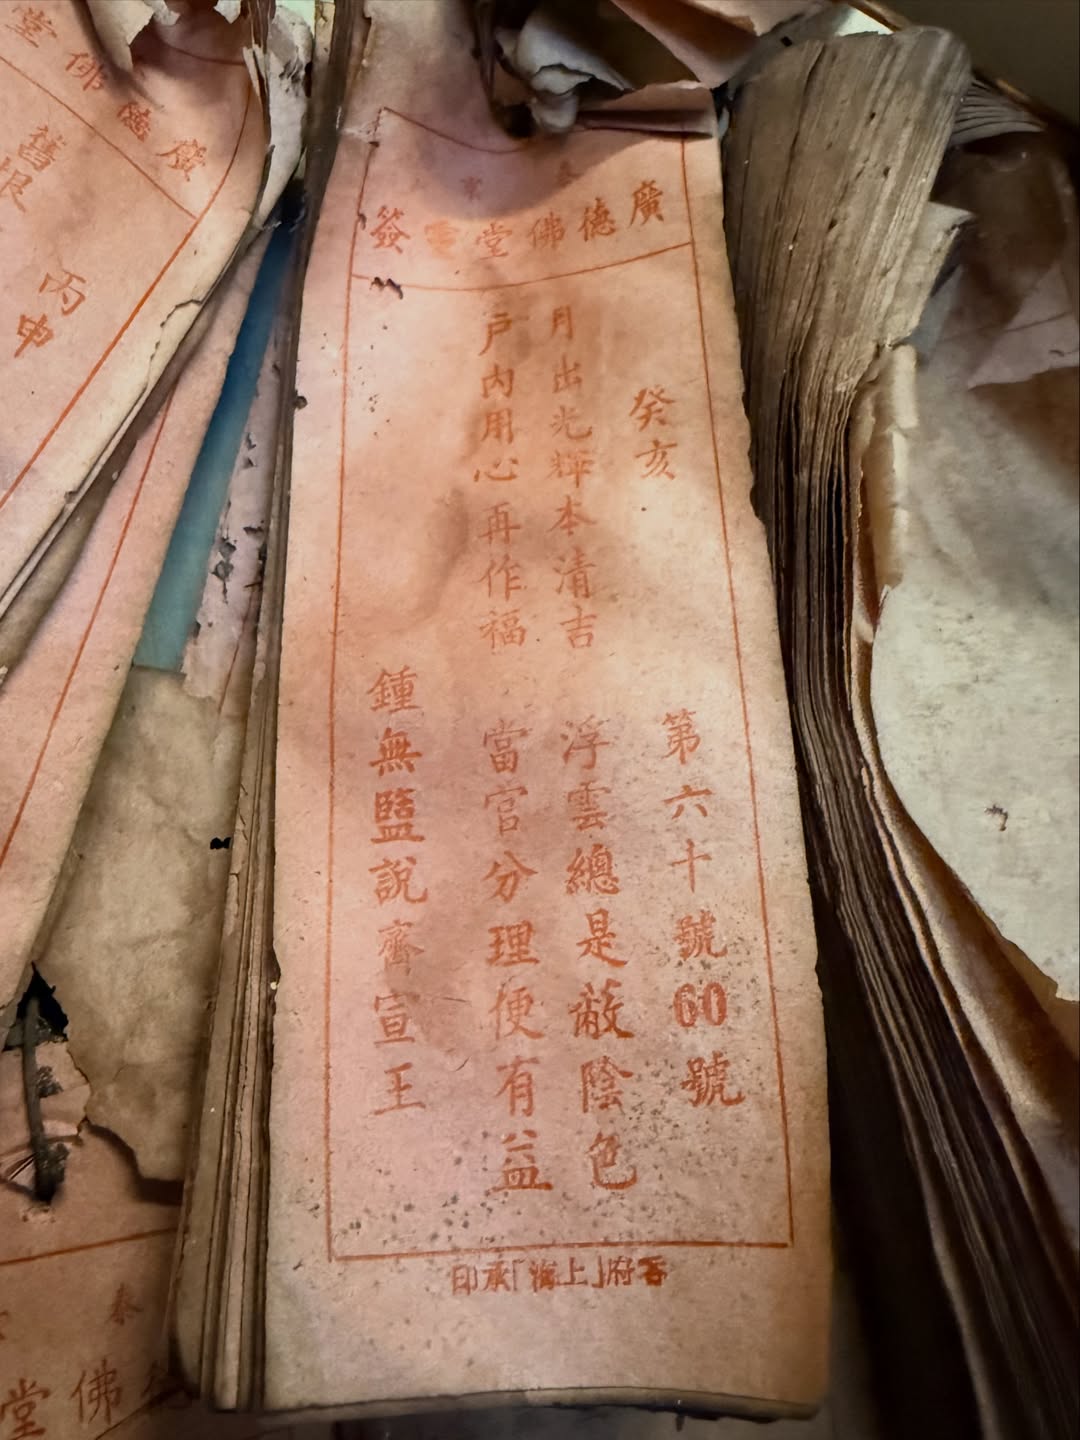 泰京
廣德佛堂靈簽
癸亥 第六十號60號
月出光輝本清吉 浮雲總是蔽陰色
戶內用心再作福 當官分理便有益
鍾無鹽說齊宣王
呑府「上海」承印
廣德佛堂
丙申
舊
泰
佛堂